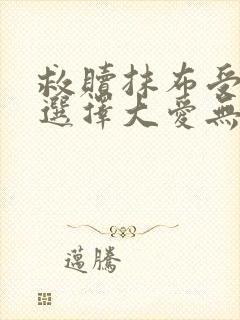 救贖抹布受
選擇大愛無
邁騰